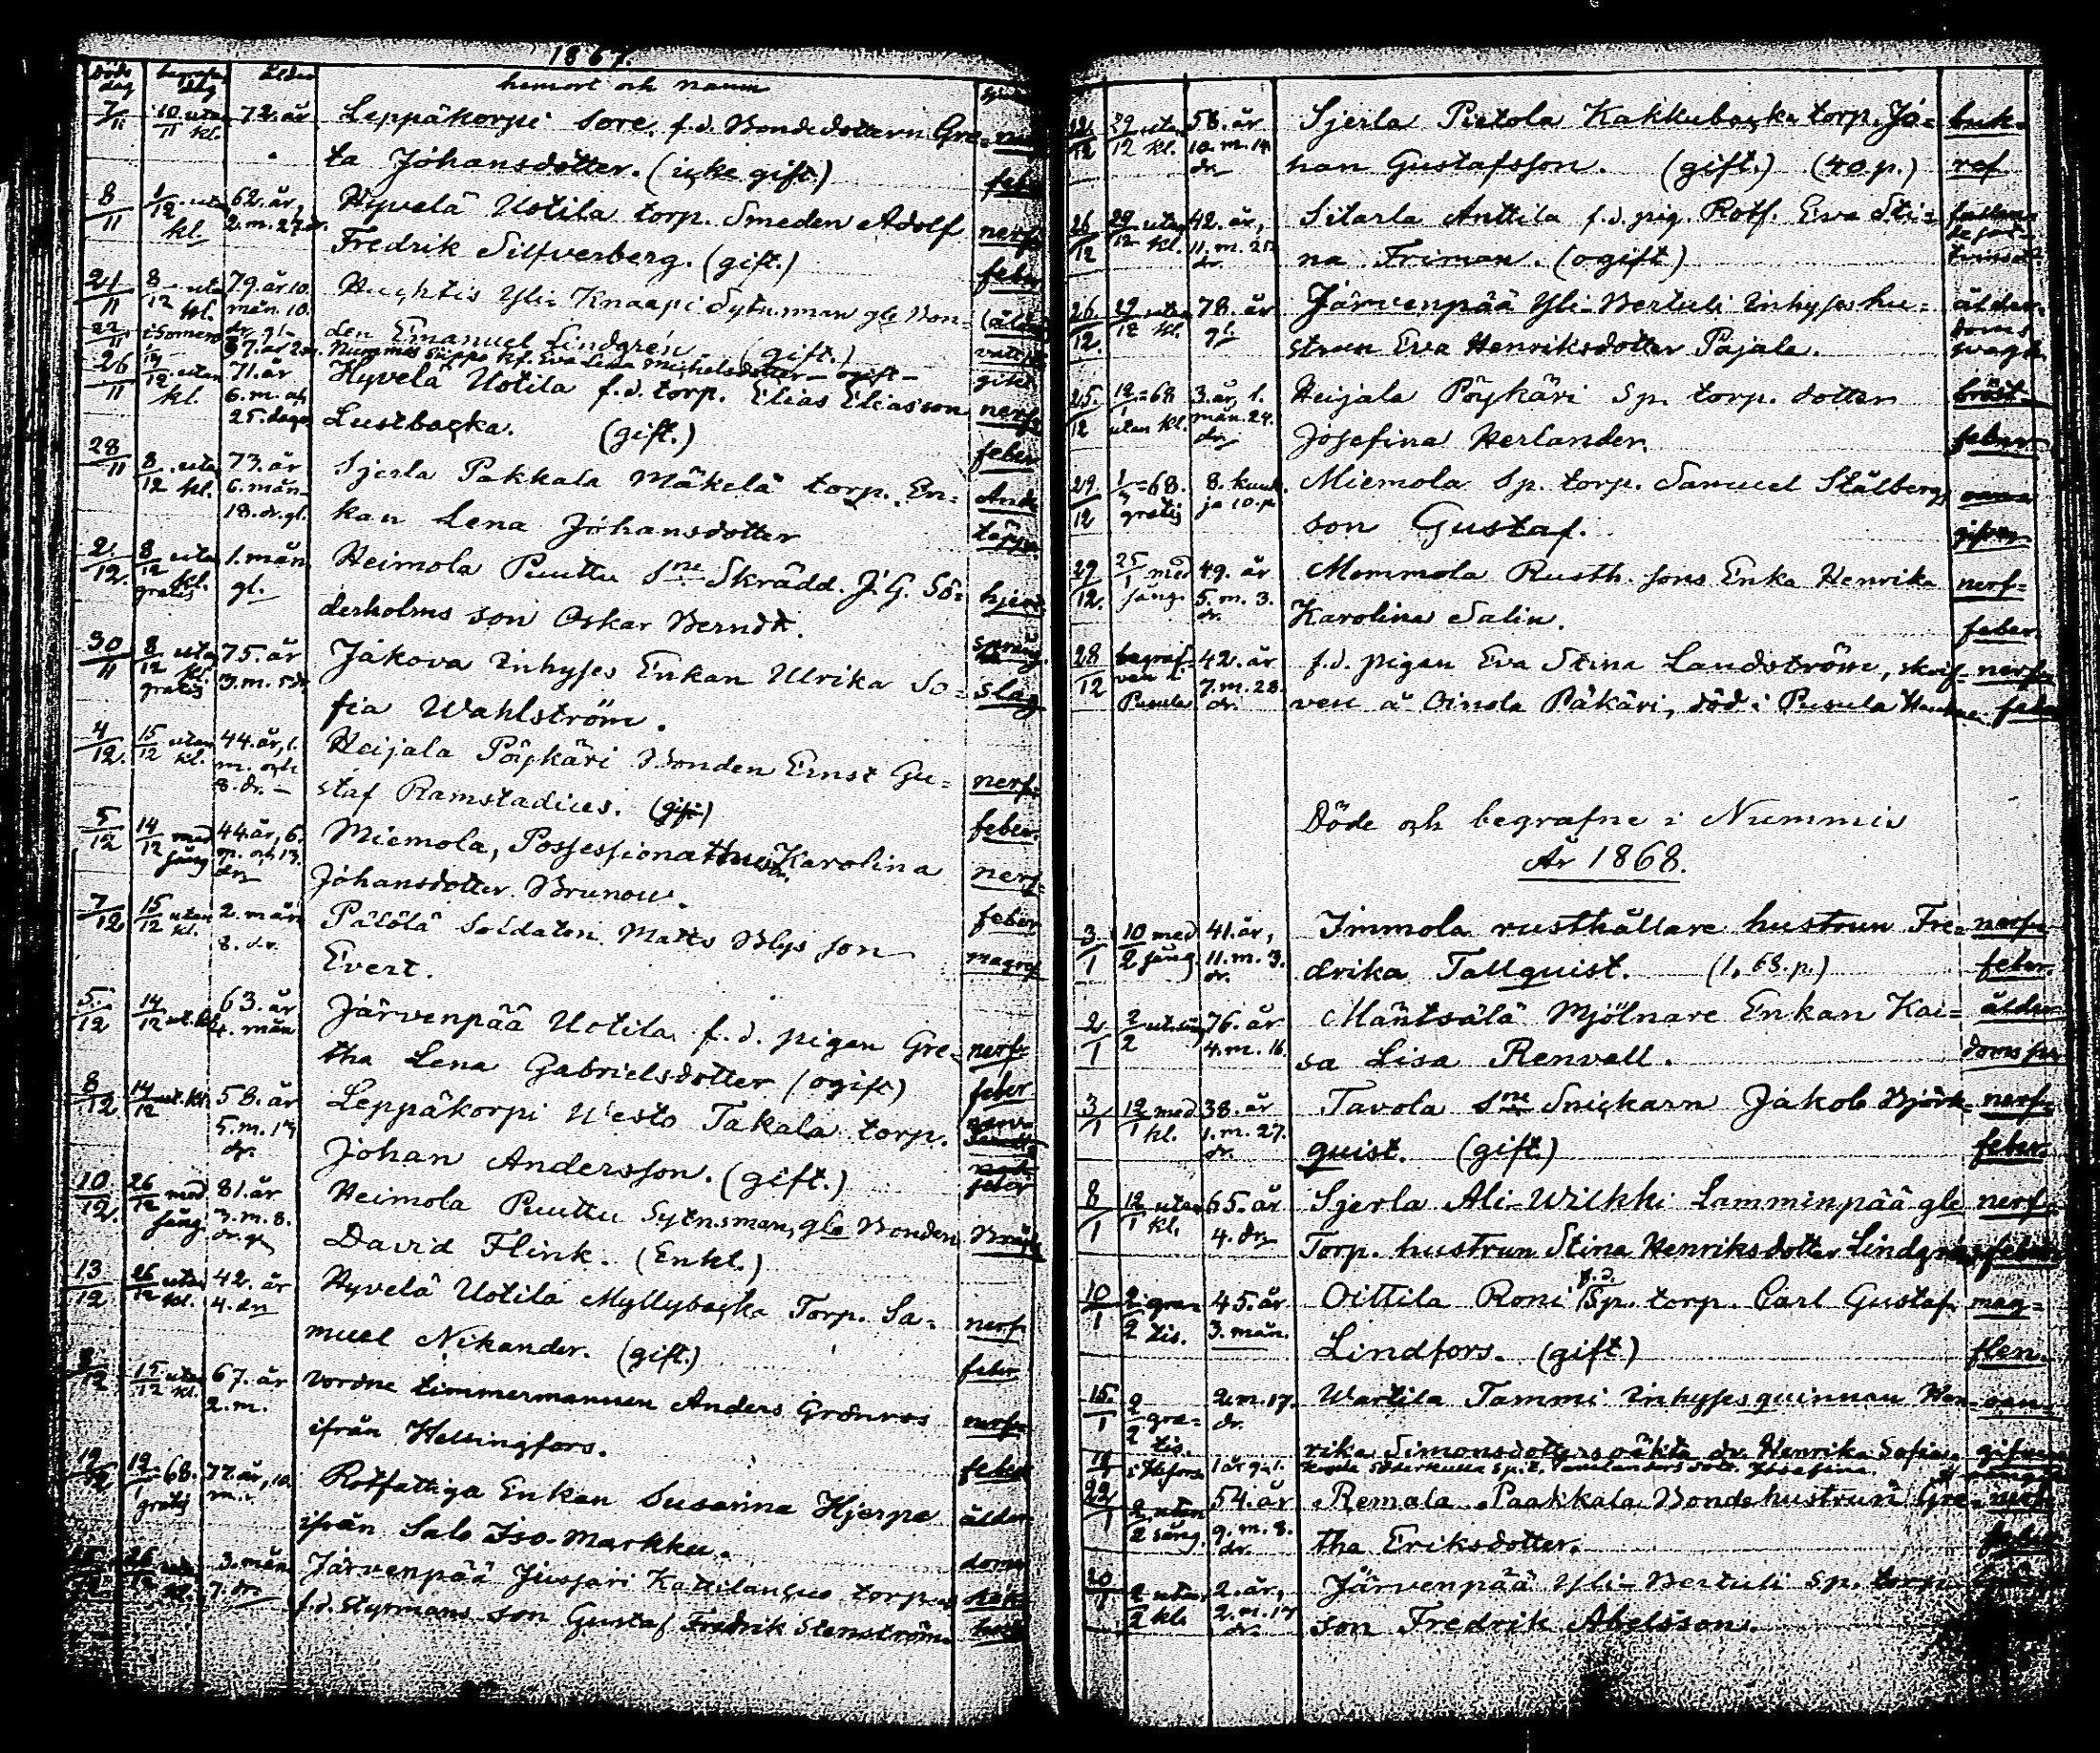 1867.
Döds dag begrafn. dag ålder hemort och namn
7/11 10/11 utan kl. 72. år Leppäkorpi Sore, f.d. Bonde dottern Gre-
ta Johansdotter. (icke gift)
8/11 1/12 utan kl. 62. år, 2. m. 27. dr. Hyvelä Uotila torp. Smeden Adolf nerf-
Fredrik Silfverberg. (gift.) feber
21/11 8/12 utan kl. 79. år 10. mån. 10. dr. gl. Huhtis Yli-Knaapi Sytn.man gle Bon-
den Emanuel Lindgrén (gift.)
22/11 i Somero Nummis Suppo Eva Lena Michelsdotter - ogift -
26/11 /12 utan kl. 71. år 6. m. och 25. dagar Hyvelä Uotila f.d. torp. Elias Eliasson nerf-
Lustbacka. (gift.) feber
28/11 8/12 utan kl. 73. år 6. mån. 18. dr. gl. Sjerla Pakkala Mäkelä torp. En- And-
kan Lena Johansdotter täppa.
2./12. 8/12 utan kl. gratis 1. mån. gl. Heimola Puuttu Sne Skrädd. J. G. Sö-
derholms son Oskar Berndt.
30/11 8/12 utan kl. gratis 75. år 3. m. 5 dr. Jakova Inhyses Enkan Ulrika So- slag
fia Wahlström.
4/12. 15/12 utan kl. 44. år, 1. m. och 8. dr. - Heijala Pöykäri Bonden Ernst Gu- nerf-
staf Ramstadius. (gift) feber.
5/12 14/12 med sång 44. år, 6. m. och 13. dr. Miemola, Possessionat hus. Karolina nerf-
Johansdotter Brunou. feber
7/12 15/12 utan kl. 2. mån 8. dr. Pälölä Soldaten Matts Blys son magref
Evert.
5./12 14/12 ut. kl. 63. år 4. mån Järvenpää Uotila f.d. pigan Gre- nerf-
tha Lena Gabrielsdotter (ogift) feber
8/12 14/12 ut. kl. 58. år 5. m. 17 dr. Leppäkorpi Westo Takala torp.
Johan Andersson. (gift.) feber
10./12. 26/12 med sång 81. år 3. m. 8. dr. Heimola Puuttu Sytn.sman, gle Bonden
David Flink. (Enkl.)
13/12 26/12 utan kl. 42. år 4. dr Hyvelä Uotila Myllybacka Torp. Sa- nerf-
muel Nikander. (gift.) feber
/12 15/12 utan kl. 67. år 2. m. vordne timmermannen Anders Grönroos nerf-
ifrån Helsingfors. feber
19/12 12/1 = 68. gratis 77. år, 10. m. Rotfattiga Enkan Susanna Hjerpe ålder-
ifrån Salo Iso-Markku. dom
3. mån 7. dr. Järvenpää Jusjari Kattilangus torp.
f.d. styrmans son Gustaf Fredrik Stenström.
/12 29/12 utan kl. 58. år 10. m. 14. dr. Sjerla Pietola Kakkubacka torp. Jo- buk-
han Gustafsson. (gift.) (40.p.) ref
26/12 29/12 utan kl. 42. år, 11. m. 25. dr. Sitarla Anttila f.d. pig. Rotf. Eva Sti-
na Friman. (ogift)
26./12. 29/12 utan kl. 78. år gl. Järvenpää Yli-Bertuli Inhyses hu- ålder-
strun Eva Henriksdotter Pajala. doms
25./12 12/1 = 68 utan kl. 3. år, 1. mån. 24. dr. Heijala Pöykäri Sp. torp. dotter bröst-
Josefina Herlander. feber
29./12 1/3 = 68. gratis 8. kuuk. ja 10. p. Miemola Sp. torp. Samuel Stålbergs oan-
son Gustaf. gifven
29/12. 25/1 med sång. 49. år 5. m. 3. dr. Mommola Rusth. sons Enka Henrika nerf-
Karolina Salin. feber.
28/12 begraf-ven i Pusula 42. år 7. m. 28. dr. f.d. pigan Eva Stina Landström, skrif- nerf-
ven å Oinola Päkäri, död i Pusula
Döde och begrafne i Nummis
År 1868.
3./1 10/2 med sång 41. år, 11. m. 3. dr. Immola rusthållare hustrun Fre- nerf-
drika Tallquist. (1,68.p.) feber.
2/1 2/2 76. år 4. m. 16. Mäntsälä Mjölnare Enkan Kai- ålder-
sa Lisa Renvall.
3/1 12/1 med kl. 38. år 1. m. 27. dr. Tavola Sne Snickarn Jakob Björk- nerf-
quist. (gift.) feber.
8/1 12/1 utan kl. 65. år 4. dr Sjerla Ali-Wilkki Lamminpää gle nerf-
Torp. hustrun Stina Henriksdotter Lindgren feber
10/1 2/2 gra-tis. 45. år 3. mån. Oittila Roni f.d. Sp. torp. Carl Gustaf mag-
Lindfors. (gift) flen.
15./1 2/2 gra-tis. 2 m. 17. dr. Wartila Tammi Inhysesquinnan Hen- oan-
rika Simonsdotters oäkta dr. Henrika Sofia. gifven
22/1 2/2 utan sång. 54. år 9. m. 8. dr. Remala Paakkala Bondehustrun Gre- nerf-
tha Eriksdotter. feber
20/1 2/2 utan kl. 2. år, 2. m. 17 dr. Järvenpää Yli-Bertuli Sp. torp.
son Fredrik Abelsson.